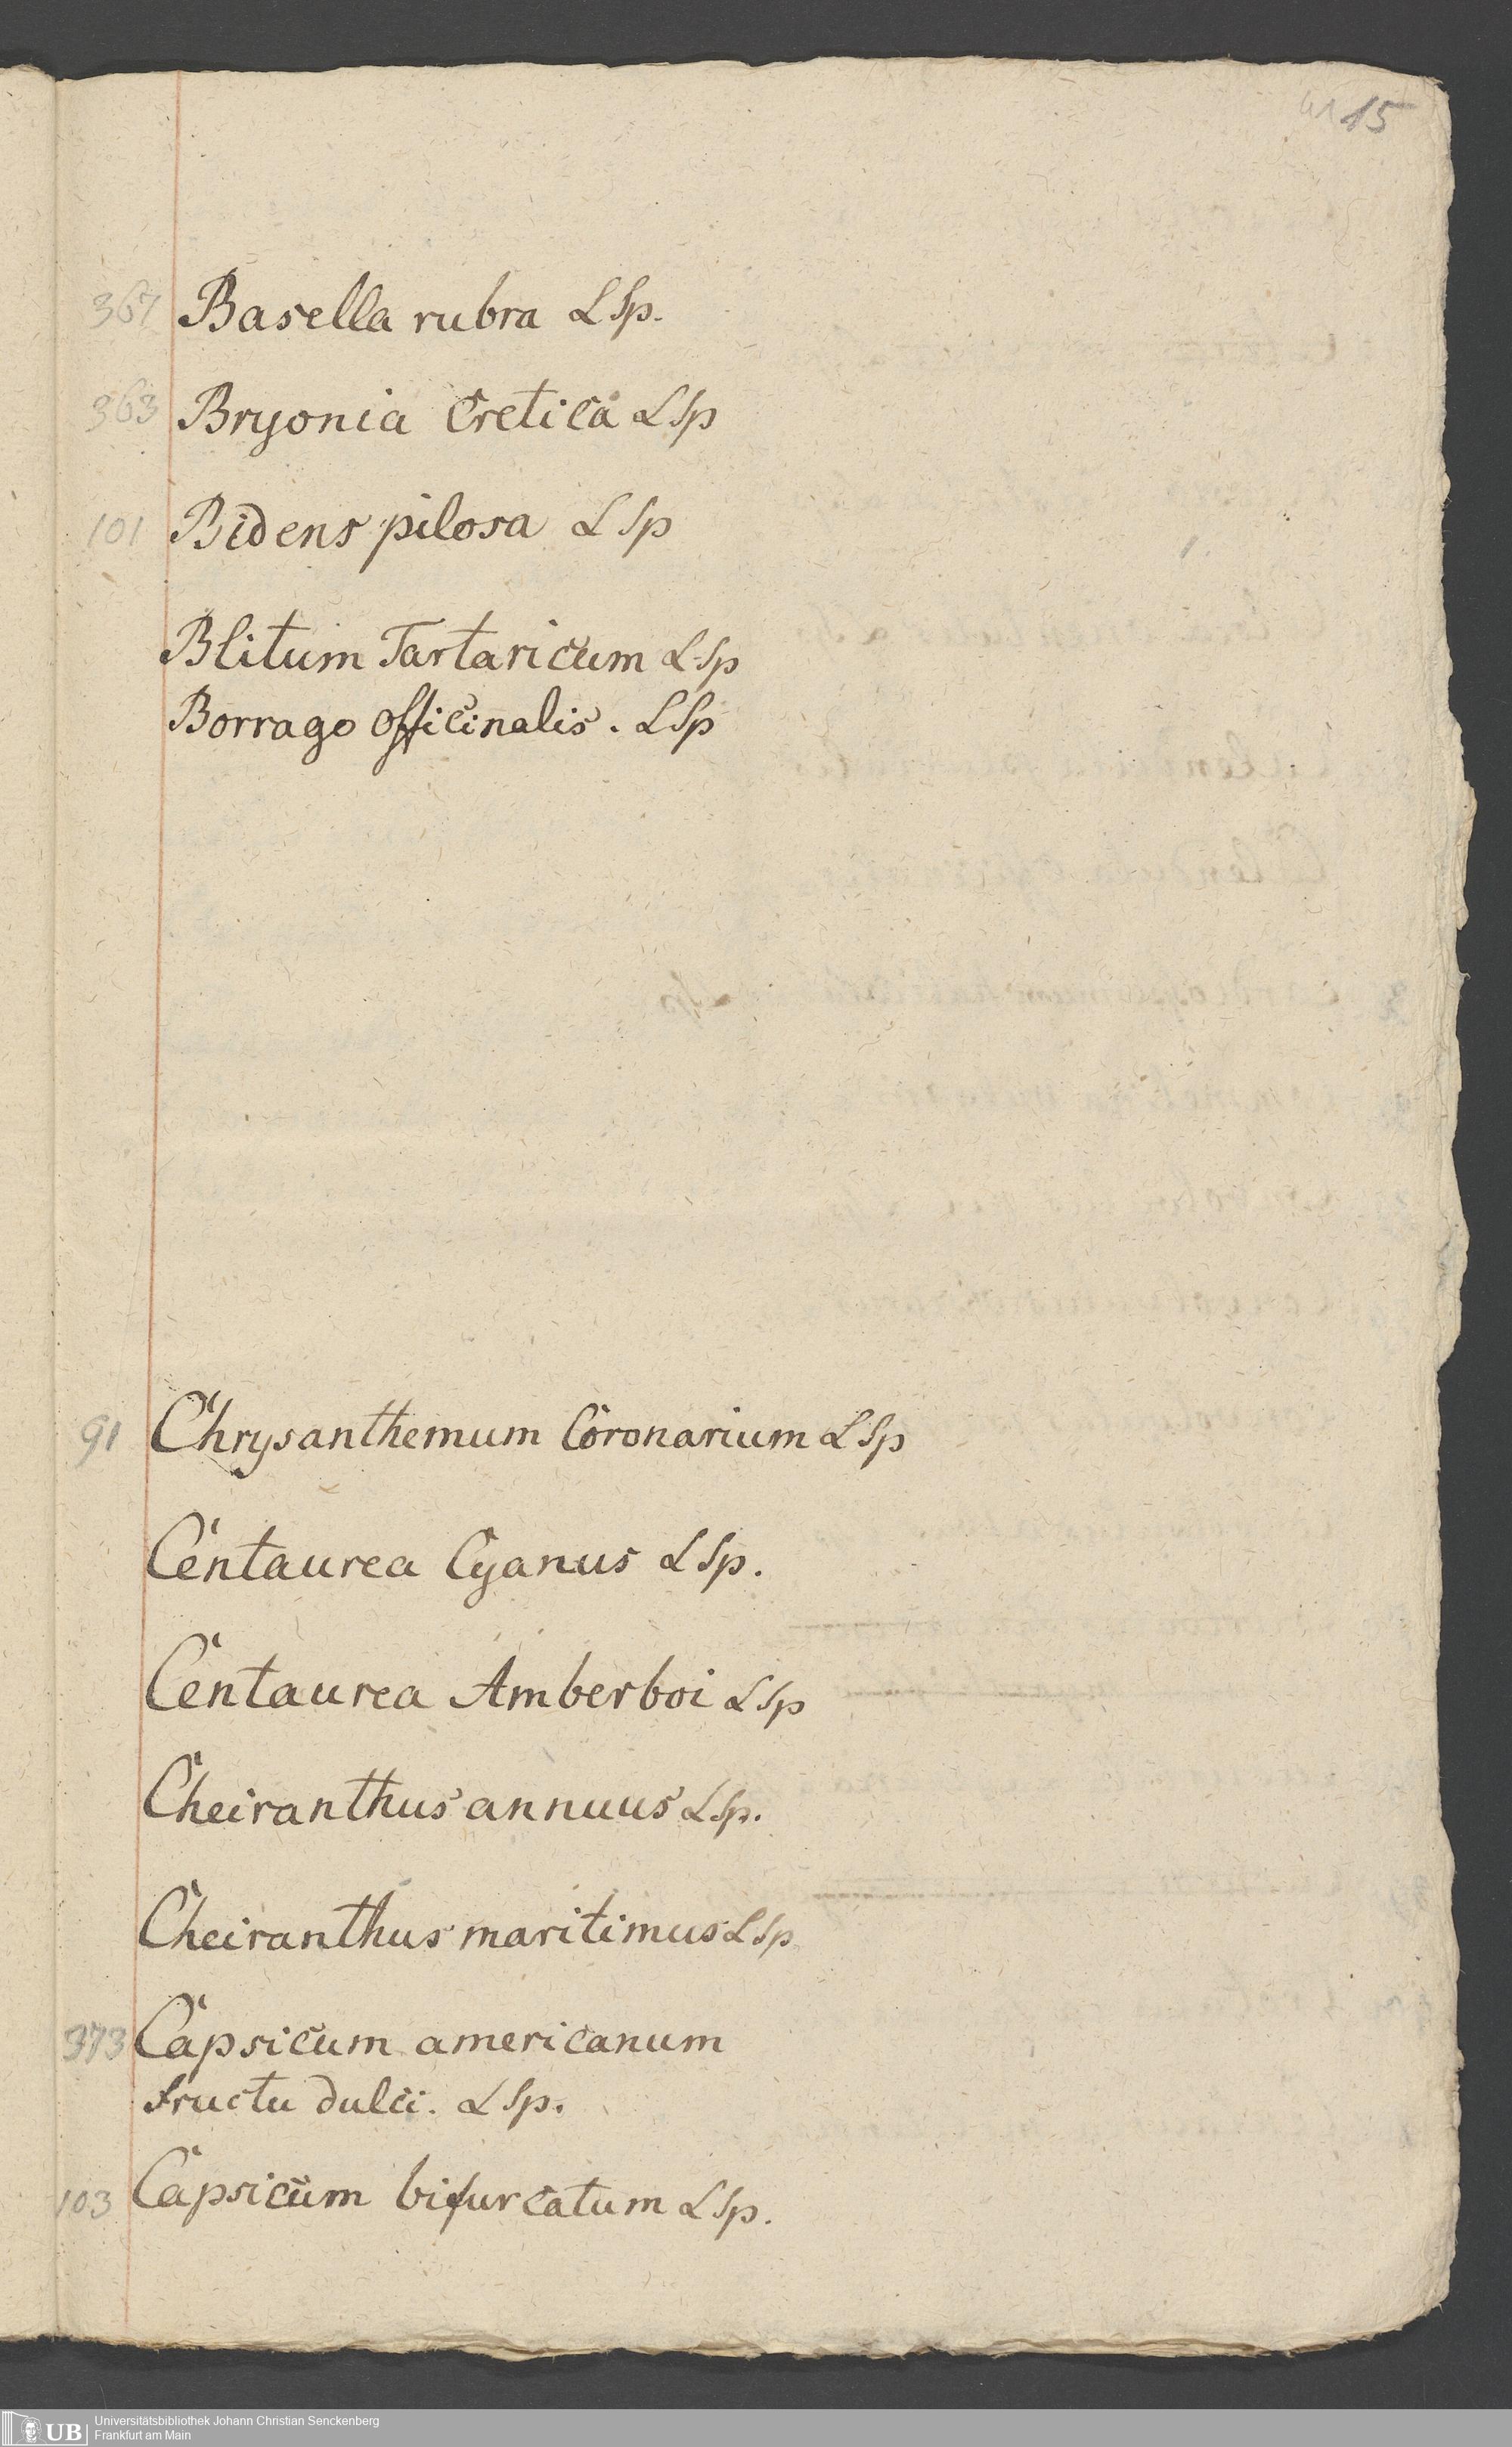 41 15
367 Basella rubra LSp.
363 Bryonia Cretica LSp
101 Bidens pilosa LSp
Blitum Tartaricum LSp
Borrago officinalis. LSp
91 Chrysanthemum Coronarium LSp
Centaurea Cyanus LSp.
Centaurea Amberboi LSp
Cheiranthus annuus LSp.
Cheiranthus maritimus LSp
373 Capsicum americanum
fructu dulci. LSp.
103 Capsicum bifurcatum LSp.
UB Universitätsbibliothek Johann Christian Senckenberg
Frankfurt am Main